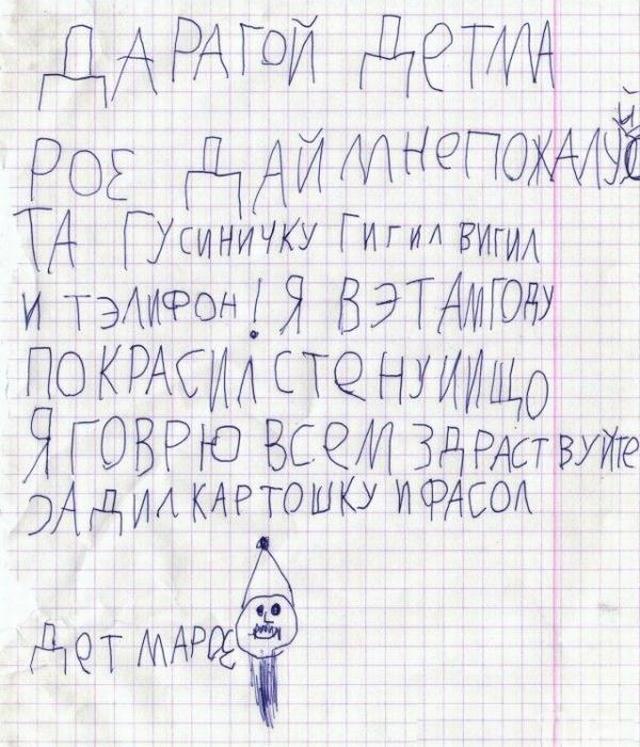 ДАРАГОЙ ДЕТМА
РОЕ ДАЙ МНЕПОЖАЛУЙС
ТА ГУСИНИЧКУ ГИГИЛ ВИГИЛ
И ТЭЛИФОН! Я ВЭТАМГОДУ
ПОКРАСИЛ СТЕНУ ИИЩО
Я ГОВРЮ ВСЕМ ЗДРАСТВУЙТЕ
САДИЛ КАРТОШКУ И ФАСОЛ
ДЕТ МАРОЕ